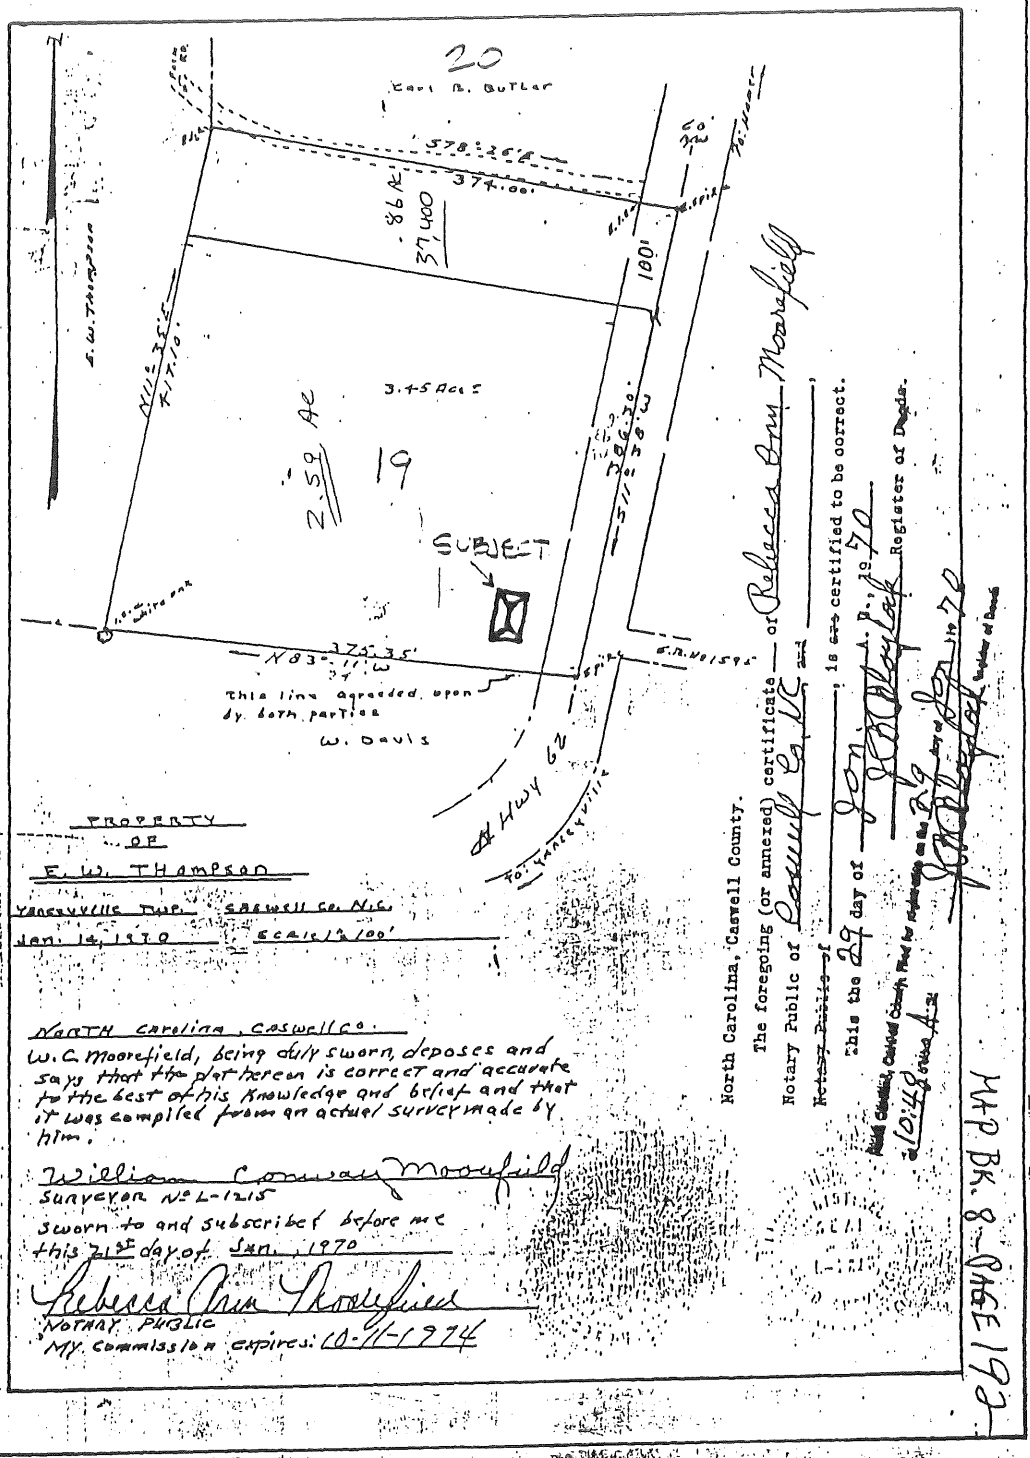 20
Earl B. Butler
S78°-26'E
374.00'
.86 AC
37,400
100'
E.W. THOMPSON
N11°-35'E
417.10'
3.45 Acs
2.59 AC
19
386.30'
S11°-38'W
SUBJECT
White oak
375.35'
N83°-11'W
Spike
S.R. No 1595
This line agreeded upon
by both parties
W. Davis
HWY 62
TO: YANCEYVILLE
PROPERTY
OF
E. W. THOMPSON
YANCEYVILLE TWP. CASWELL CO. N.C.
JAN. 14, 1970 SCALE 1"=100'
NORTH CAROLINA, CASWELL CO.
W.C. Moorefield, being duly sworn, deposes and
says that the plat hereon is correct and accurate
to the best of his knowledge and belief and that
it was compiled from an actual survey made by
him.
William Conway Moorefield
SURVEYOR Nº L-1215
Sworn to and subscribed before me
this 21st day of Jan., 1970
Rebecca Ann Moorefield
NOTARY PUBLIC
MY Commission expires: 10-11-1974
North Carolina, Caswell County.
The foregoing (or annexed) certificate of Rebecca Ann Moorefield
Notary Public of Caswell Co. NC, and
Notary Public of , is are certified to be correct.
This the 29 day of Jan. A. D., 1970
Register of Deeds.
10:48
MAP BK. 8 - PAGE 192